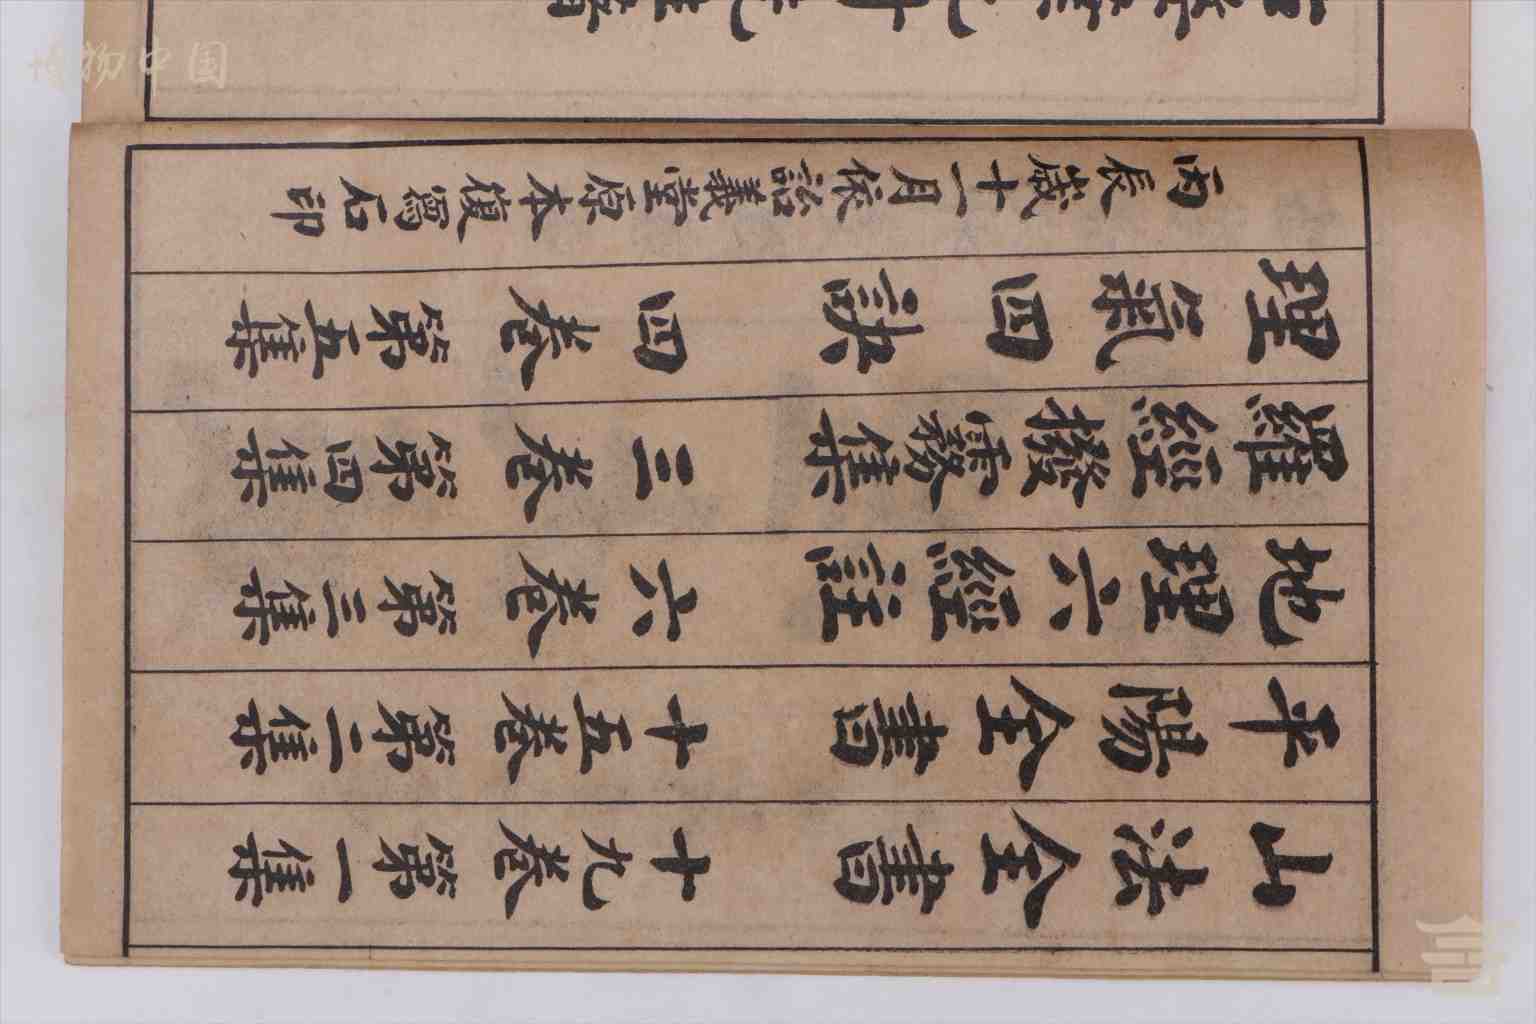 山法全書 十九卷 第一集
平陽全書 十五卷 第二集
地理六經註 六卷 第三集
羅經撥霧集 三卷 第四集
理氣四訣 四卷 第五集
丙辰歲十一月依詒義堂原本復寫石印
博物中国